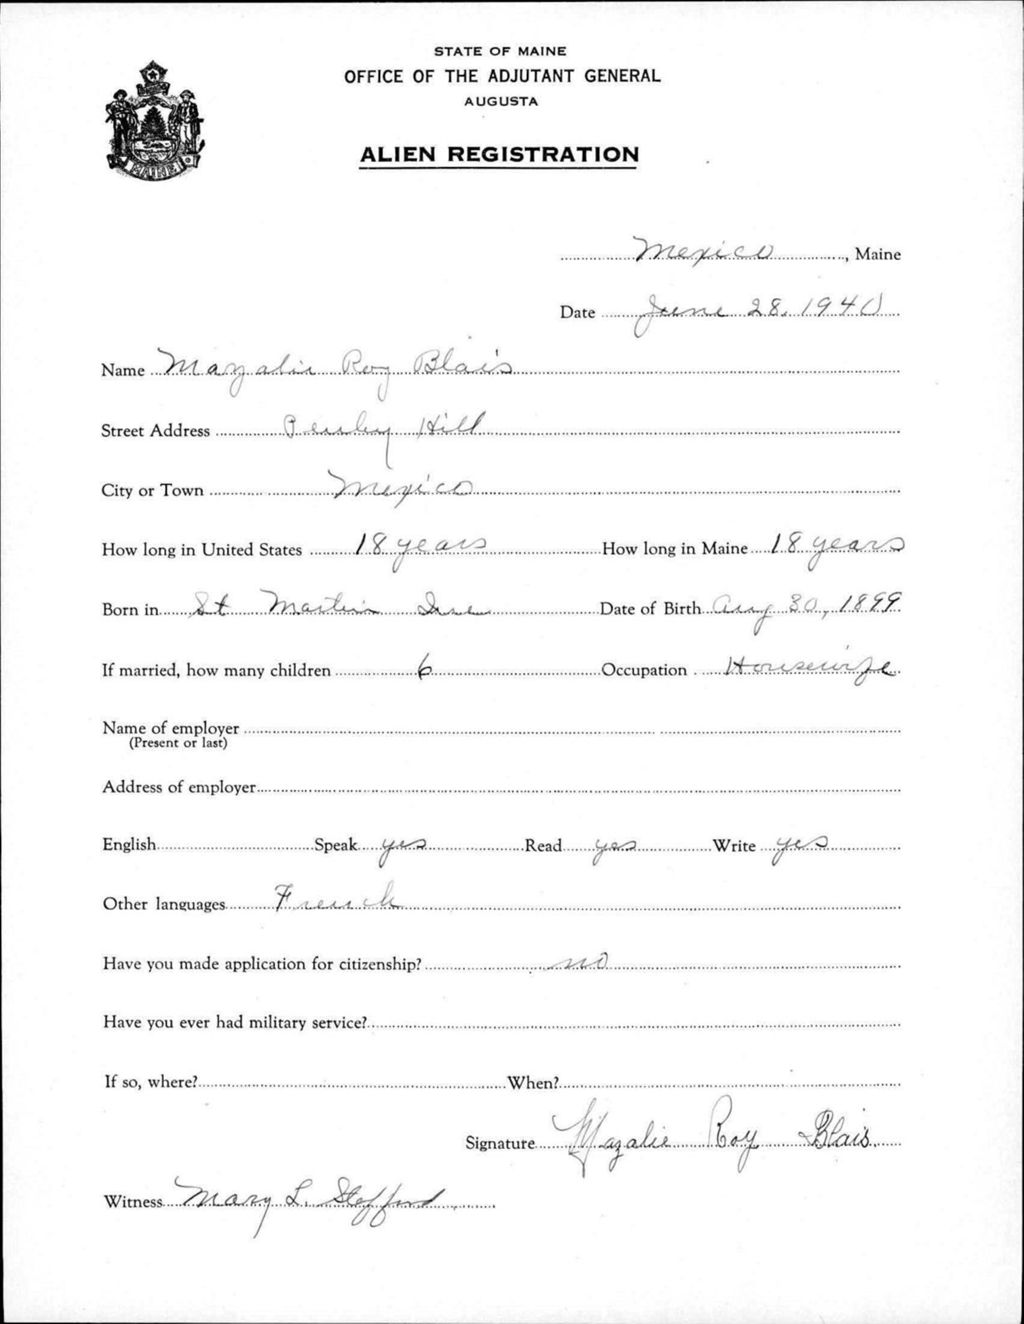 STATE OF MAINE
OFFICE OF THE ADJUTANT GENERAL
AUGUSTA
ALIEN REGISTRATION
MAINE
Mexico, Maine
Date June 28, 1940
Name Mazalie Roy Blais
Street Address Hill
City or Town Mexico
How long in United States 18 years How long in Maine 18 years
Born in St Martin Date of Birth Aug 30, 1899
If married, how many children 6 Occupation Housewife
Name of employer
(Present or last)
Address of employer
English Speak yes Read yes Write yes
Other languages French
Have you made application for citizenship? no
Have you ever had military service?
If so, where? When?
Signature Mazalie Roy Blais
Witness Mary L. Stafford